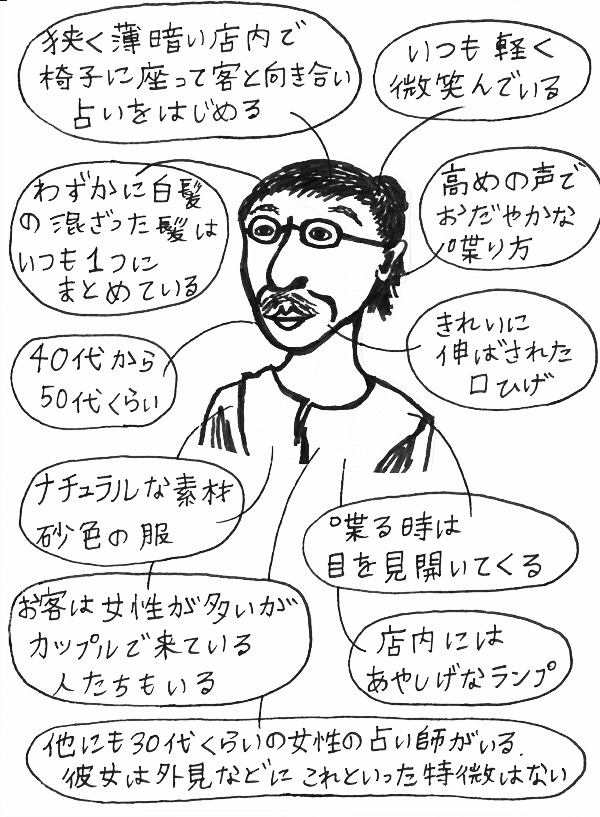 狭く薄暗い店内で
椅子に座って客と向き合い
占いをはじめる
いつも軽く
微笑んでいる
わずかに白髪
の混ざった髪は
いつも1つに
まとめている
高めの声で
おだやかな
喋り方
きれいに
伸ばされた
口ひげ
40代から
50代くらい
ナチュラルな素材
砂色の服
喋る時は
目を見開いてくる
お客は女性が多いが
カップルで来ている
人たちもいる
店内には
あやしげなランプ
他にも30代くらいの女性の占い師がいる.
彼女は外見などにこれといった特徴はない